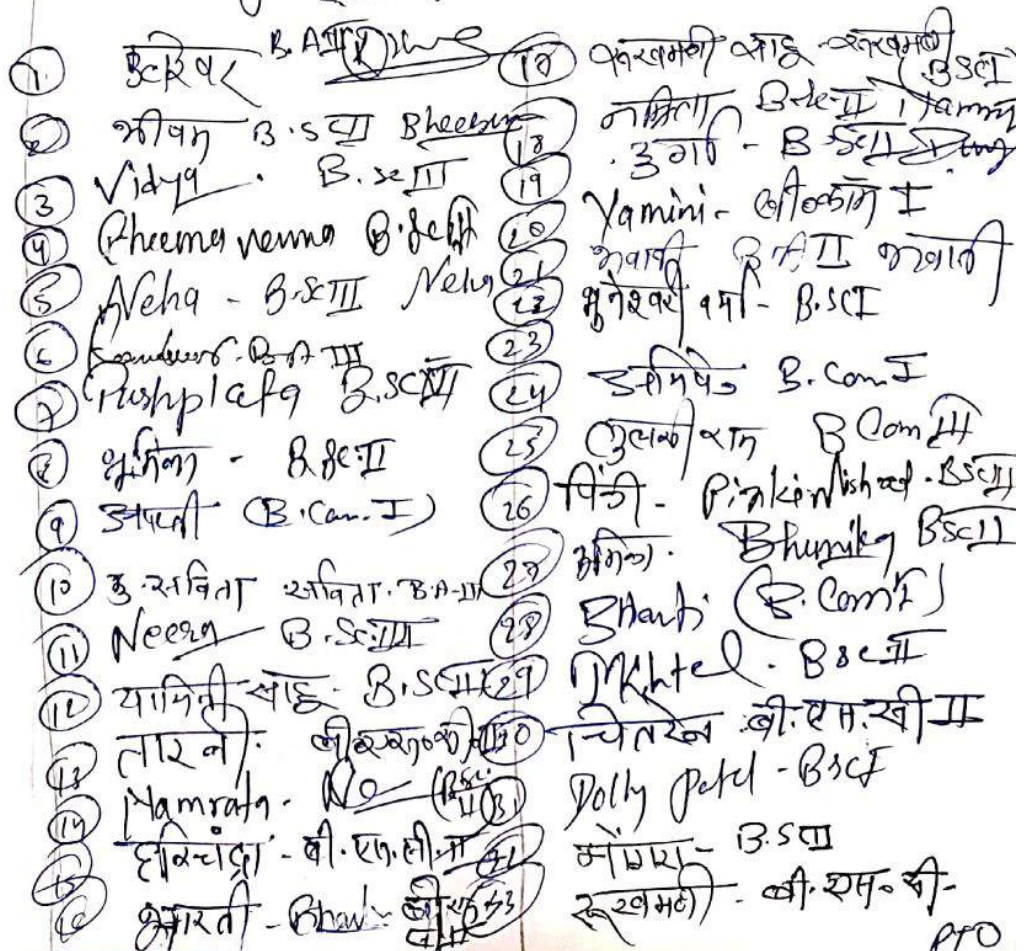 1
B.A II
2 भीषम B.Sc II Bheesm
3 Vidya. B.Sc III
4 Pheema verma B.Sc III
5 Neha - B.Sc III Neha
6 B.A III
7 Pushplata B.SC III
8 भूमिका - B.Sc. II
9 (B.Com. I)
10 कु. सविता सविता. B.A-III
11 Neera B.Sc. III
12 यामिनी साहू - B.SC II
13 तारनी.
14 Namrata -
15 हरिचंद्रा - बी.एस.सी. II
16 भारती -
17 रूखमणी साहू - रूखमणी BSC I
नमिता B.Sc-II
18 दुर्गा - B.SC II
19
Yamini - बीकॉम I
20
भवानी B.A II भवानी
21
22 भुनेश्वरी वर्मा - B.SC I
23
24 B.Com I
25 तुलसी राम B Com III
26 पिंकी - Pinki Nishad - BSC II
27 भूमिका. Bhumika BSC II
28 Bharti (B.Com I)
29 BSc II
30 बी.एस.सी II
31
Dolly Patel - BSC I
B.SC II
33 रूखमणी - बी.एस.सी-
PTO